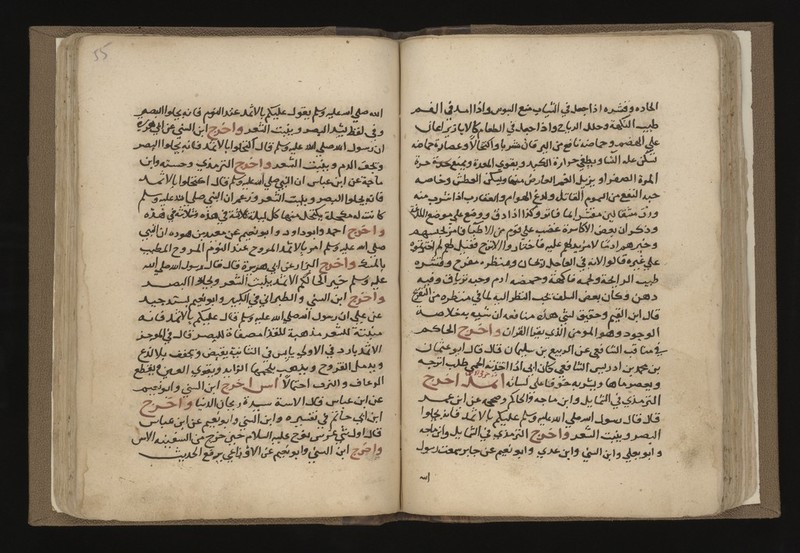 الحاده وقشره اذا جعل في الثياب منع السوس واذا امسك في الفم
طيب النكهة وحلل الرياح واذا جعل في الطعام كالابازير اعان
على الهضم وحماضه نافع من اليرقان شربا واكتحالا وعصارة حماضه
تسكن غلمة النسا ويطفي حرارة الكبد ويقوي المعدة ويمنع حدة
المرة الصفرا ويزيل الغم العارض منها ويسكن العطش وخاصه
حبه النفع من السموم القاتله ولدغ الهوام والعقارب اذا شرب منه
وزن مثقالين مقشرا بما فاتر وكذا اذا دق ووضع على موضع اللدغة
وذكر ان بعض الاكاسرة غضب على قوم من الاطبا فامر بحبسهم
وخيرهم ادما لا مزيد لهم عليه فاختاروا الاترج فقيل لهم لم اخترتموه
على غيره قالوا لانه في العاجل ريحان ومنظره مفرح وقشره
طيب الرائحة ولحمه فاكهة وحمضه ادم وحبه ترياق وفيه
دهن وكان بعض السلف يحب النظر اليه لما في منظره من التفريح
قال ابن القيم وحقيق لشي هذه منافعه ان يشبه به خلاصة
الوجود وهو المومن الذي يقرا القران واخرج الحاكم
في مناقب الشافعي عن الربيع بن سليمان قال قال ابو عثمان
بن محمد بن ادريس الشافعي كان ابي اذا اخذته الحمى طلب اترجه
ويعصر ماها ويشربه خوفا على لسانه اثمد اخرج
الترمذي في الشمايل وابن ماجه والحاكم وصححه عن ابن عمر
قال قال رسول الله صلى الله عليه وسلم عليكم بالاثمد فانه يجلوا
البصر وينبت الشعر واخرج الترمذي في الشمايل وابن ماجه
وابو يعلي وابن السني وابن عدي وابو نعيم عن جابر سمعت رسول
الله
55
الله صلى الله عليه وسلم يقول عليكم بالاثمد عند النوم فانه يجلوا البصر
وفي لفظ يشد البصر وينبت الشعر واخرج ابن السني عن ابي هريرة
ان رسول الله صلى الله عليه وسلم قال اكتحلوا بالاثمد فانه يجلوا البصر
ويخف الدم وينبت الشعر واخرج الترمذي وحسنه وابن
ماجة عن ابن عباس ان النبي صلى الله عليه وسلم قال اكتحلوا بالاثمد
فانه يجلوا البصر وينبت الشعر وزعم ان النبي صلى الله عليه وسلم
كانت له مكحلة يكتحل منها كل ليلة ثلاثة في هذه وثلاثة في هذه
واخرج احمد وابو داود وابو نعيم عن معبد بن هوده ان النبي
صلى الله عليه وسلم امر بالاثمد المروح عند النوم المروح المطيب
بالمسك واخرج البزار عن ابي هريرة قال قال رسول الله صلى الله
عليه وسلم خير اكحالكم الاثمد ينبت الشعر ويجلوا البصر
واخرج ابن السني والطبراني في الكبير وابو نعيم بسند جيد
عن علي ان رسول الله صلى الله عليه وسلم قال عليكم بالاثمد فانه
منبتة للشعر مذهبة للقذا مصفاة للبصر قال في الموجز
الاثمد بارد في الاولى يابس في الثانية يقبض ويجفف بلا لذع
ويدمل القروح ويذهب بلحمها الزايد ويقوي العين ويقطع
الرعاف والنزف احتمالا آس اخرج ابن السني وابو نعيم
عن ابن عباس قال الاسة سيدة ريحان الدنيا واخرج
ابن ابي حاتم في تفسيره وابن السني وابو نعيم عن ابن عباس
قال اول شي غرس نوح عليه السلام حين خرج من السفينه الاس
واخرج ابن السني وابو نعيم عن الاوزاعي يرفع الحديث